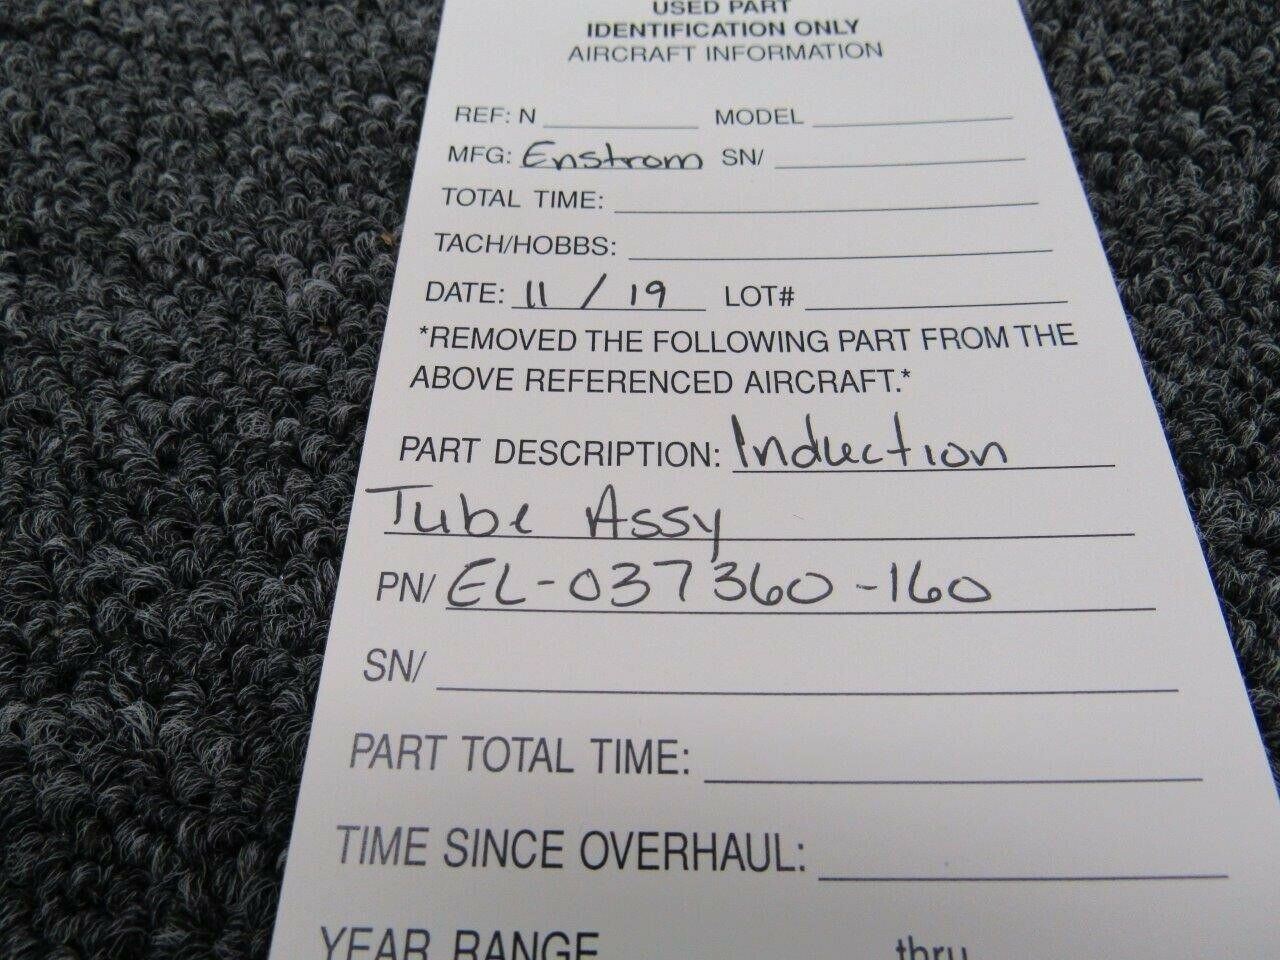 USED PART
IDENTIFICATION ONLY
AIRCRAFT INFORMATION
REF: N MODEL
MFG: Enstrom SN/
TOTAL TIME:
TACH/HOBBS:
DATE: 11 / 19 LOT#
*REMOVED THE FOLLOWING PART FROM THE
ABOVE REFERENCED AIRCRAFT.*
PART DESCRIPTION: Induction
Tube Assy
PN/ EL-037360-160
SN/
PART TOTAL TIME:
TIME SINCE OVERHAUL:
YEAR RANGE thru